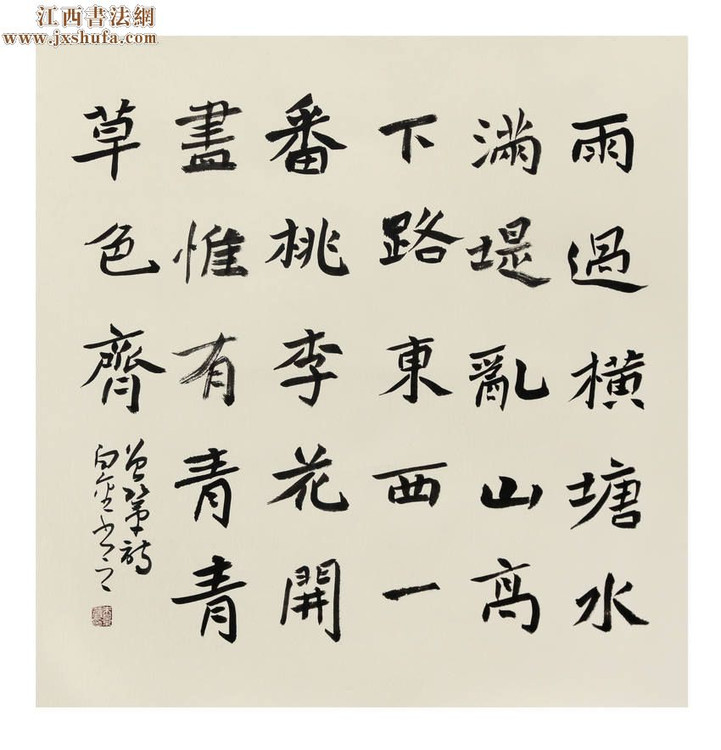 江西書法網
www.jxshufa.com
雨過橫塘水
滿堤亂山高
下路東西一
番桃李花開
盡惟有青青
草色齊
曾鞏詩